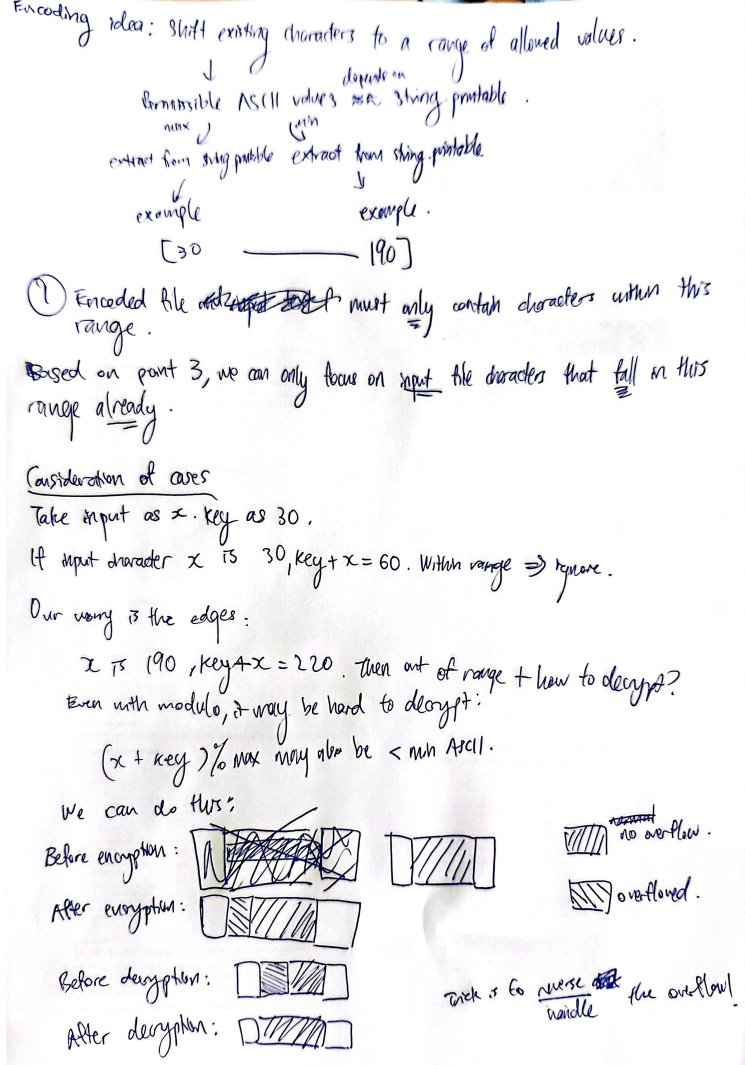 Encoding idea: Shift existing characters to a range of allowed values.
depends on
Permissible ASCII values string.printable.
max min
extract from string.printable extract from string.printable.
example example.
[30 190]
1 Encoded file must only contain characters within this
range.
Based on point 3, we can only focus on input file characters that fall in this
range already.
Consideration of cases
Take input as x. Key as 30.
If input character x is 30, key + x = 60. Within range ⇒ ignore.
Our worry is the edges:
x is 190, key + x = 220. Then out of range + how to decrypt?
Even with modulo, it may be hard to decrypt:
(x + key) % max may also be < min ASCII.
We can do this:
no overflow.
Before encryption:
overflowed.
After encryption:
Before decryption:
Trick is to reverse the overflow!
handle
After decryption: